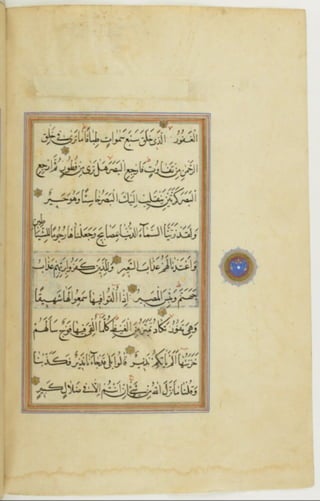 الغفور الذي خلق سبع سموات طباقا ما ترى في خلق
الرحمن من تفاوت فارجع البصر هل ترى من فطور ثم ارجع
البصر كرتين ينقلب اليك البصر خاسئا وهو حسير
ولقد زينا السماء الدنيا بمصابيح وجعلناها رجوما للشياطين
واعتدنا لهم عذاب السعير وللذين كفروا بربهم عذاب
جهنم وبئس المصير اذا القوا فيها سمعوا لها شهيقا
وهي تفور تكاد تميز من الغيظ كلما القي فيها فوج سألهم
خزنتها الم يأتكم نذير قالوا بلى قد جاءنا نذير فكذبنا
وقلنا ما نزل الله من شئ ان انتم الا في ضلال كبير